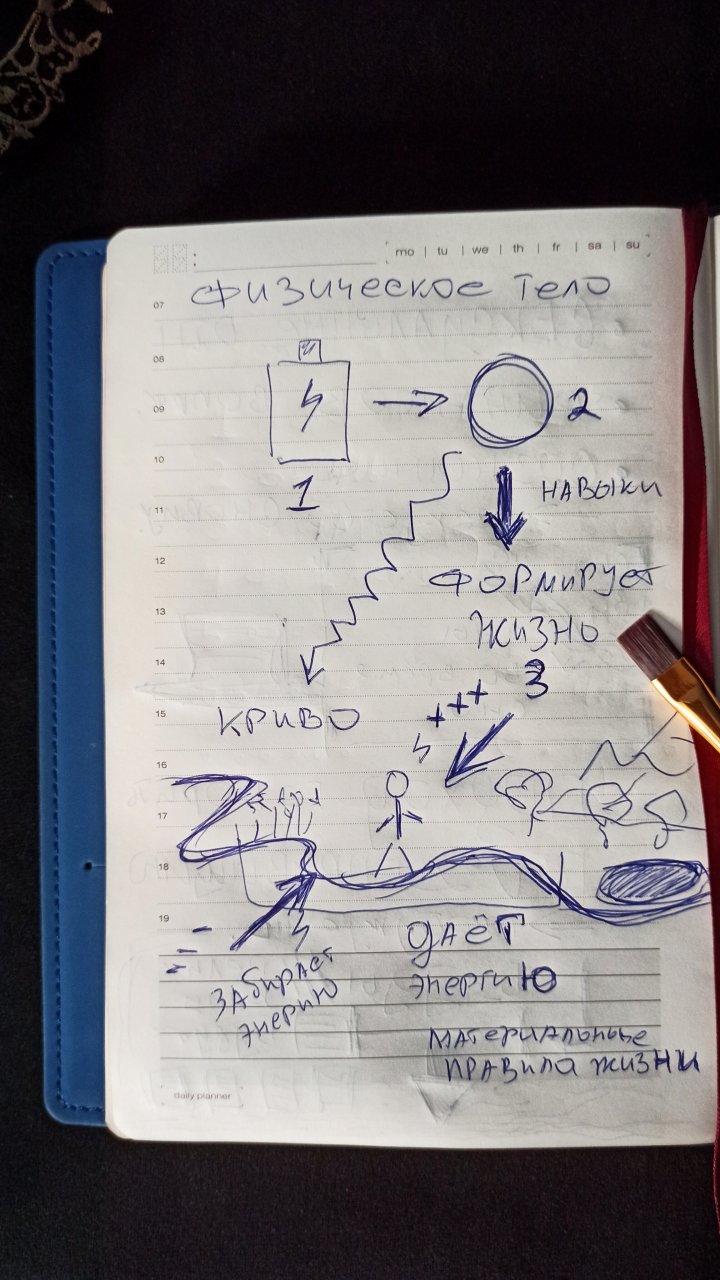 mo | tu | we | th | fr | sa | su
физическое тело
07
08
09
10
11
12
13
14
15
16
17
18
19
1
2
НАВЫКИ
ФОРМИРУЕТ
ЖИЗНЬ
3
КРИВО
+++
ЗАбирАет
энерию
дАЁТ
энергию
МАТеРИАЛЬНЫе
ПРАВИЛА ЖИЗНИ
daily planner